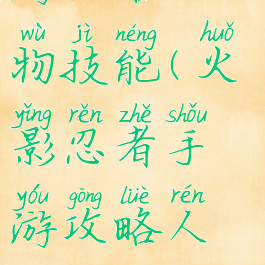 wù jì néng huǒ
物技能(火
yǐng rěn zhě shǒu
影忍者手
yóu gōng lüè rén
游攻略人